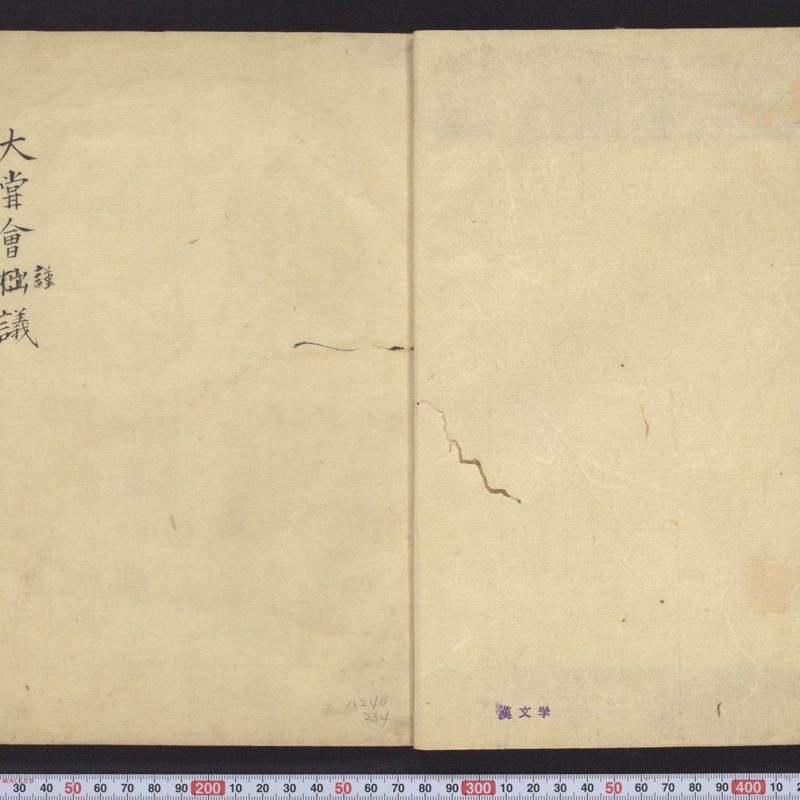 大嘗會杣議
謹
ハ240
234
漢文学
STAINLESS
30 40 50 60 70 80 90 200 10 20 30 40 50 60 70 80 90 300 10 20 30 40 50 60 70 80 90 400 10